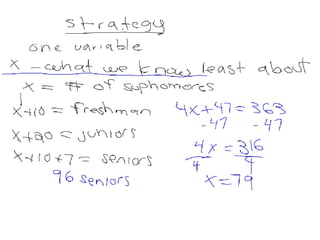 strategy
one variable
x - what we know least about
x = # of sophomores
x+10 = freshman
x+20 = juniors
x+10+7 = seniors
96 seniors
4x+47=363
-47 -47
4x = 316
4 4
x=79